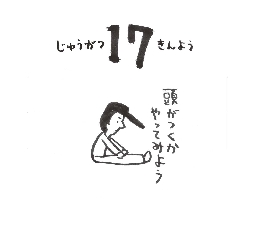 じゅうがつ 17 きんよう
頭がつくか
やってみよう